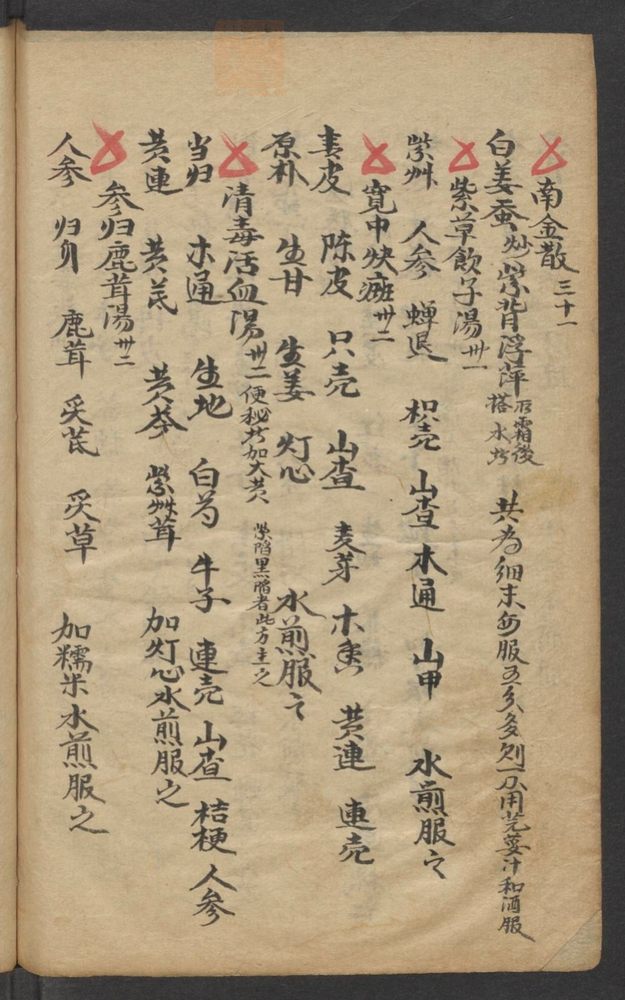 南金散 三十一
白姜蚕 炒 紫背浮萍 霜後 搭水 共為細末每服五分多則一仄用芫荽汁和酒服
紫草飲子湯 卅一
紫艸 人参 蟬退 枳壳 山查 木通 山甲 水煎服之
寬中快癍 卅二
青皮 陳皮 只壳 山查 麦芽 木香 黄連 連壳
厚朴 生甘 生姜 灯心 水煎服之
清毒活血湯 卅二 便秘者加大黄 紫陷黒陷者此方主之
当归 木通 生地 白芍 牛子 連壳 山查 桔梗 人参
黄連 黄芪 黄芩 紫艸茸 加灯心水煎服之
参归鹿茸湯 卅二
人参 归身 鹿茸 炙芪 炙草 加糯米水煎服之